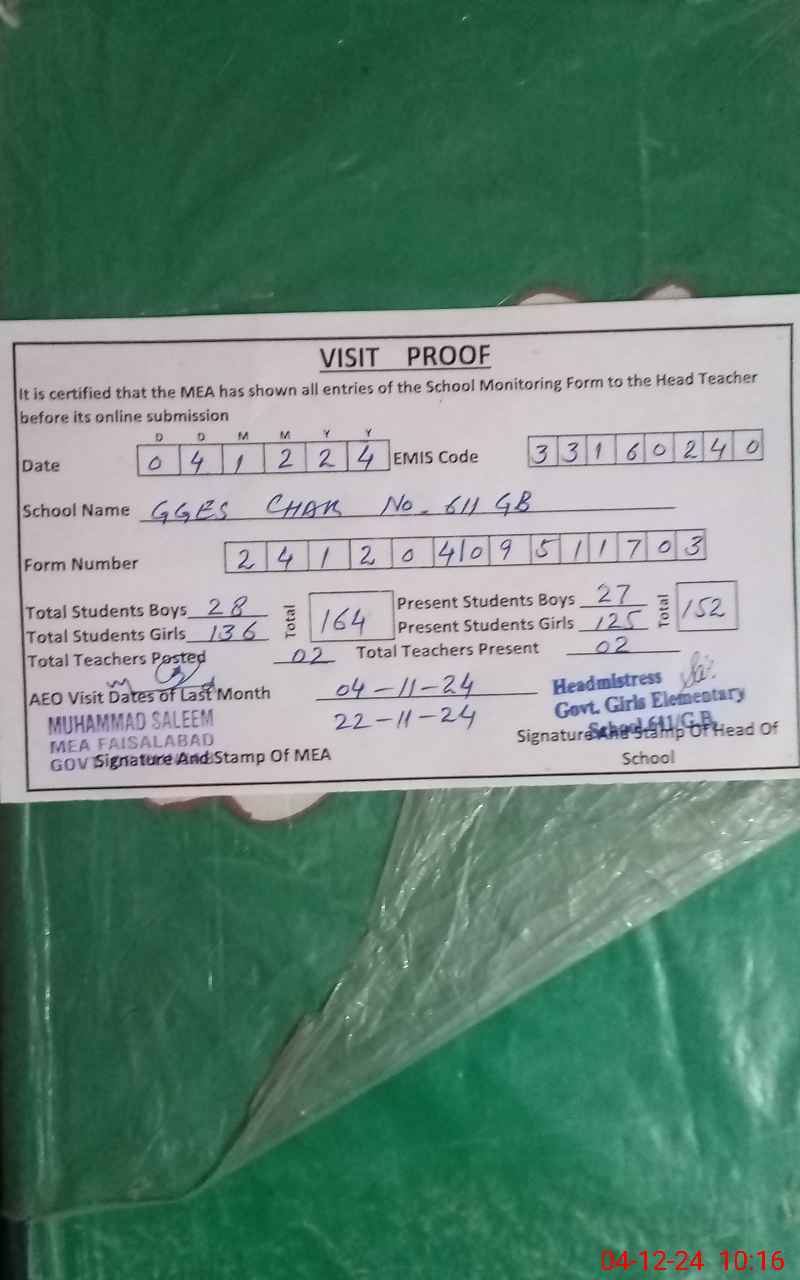 VISIT PROOF
It is certified that the MEA has shown all entries of the School Monitoring Form to the Head Teacher
before its online submission
D D M M Y Y
Date 0 4 1 2 2 4 EMIS Code 3 3 1 6 0 2 4 0
School Name GGES CHAK No. 611 GB
Form Number 2 4 1 2 0 4 1 0 9 5 1 1 7 0 3
Total Students Boys 28 Total 164 Present Students Boys 27 Total 152
Total Students Girls 136 Present Students Girls 125
Total Teachers Posted 02 Total Teachers Present 02
AEO Visit Dates of Last Month 04-11-24
22-11-24
MUHAMMAD SALEEM
MEA FAISALABAD
Signature And Stamp Of MEA
Headmistress
Govt. Girls Elementary
School 611/G.B.
Signature And Stamp Of Head Of
School
04-12-24 10:16